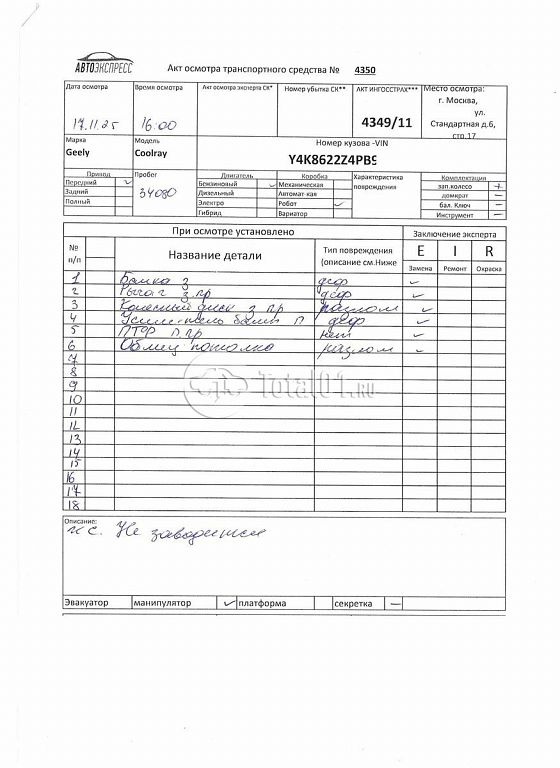 АВТОЭКСПРЕСС
Акт осмотра транспортного средства № 4350
Дата осмотра Время осмотра Акт осмотра эксперта СК* Номер убытка СК** АКТ ИНГОССТРАХ*** Место осмотра:
17.11.25 16:00 4349/11 г. Москва,
ул.
Стандартная д.6,
стр.17
Марка Модель Номер кузова -VIN
Geely Coolray Y4K8622Z4PB9
Привод Пробег Двигатель Коробка Характеристика повреждения Комплектация
Передний 34080 Бензиновый Механическая зап.колесо +
Задний Дизельный Автомат-кая домкрат –
Полный Электро Робот бал. Ключ –
Гибрид Вариатор Инструмент –
При осмотре установлено Заключение эксперта
№ п/п Название детали Тип повреждения (описание см.Ниже E I R
Замена Ремонт Окраска
1 Балка з деф
2 Рычаг з.пр деф
3 Колесный диск з пр разлом
4 Усилитель бампп деф
5 ПТФ п пр нет
6 Облиц потолка разлом
7
8
9
Total01.RU
10
11
12
13
14
15
16
17
18
Описание:
н с. Не заводится
Эвакуатор манипулятор платформа секретка –